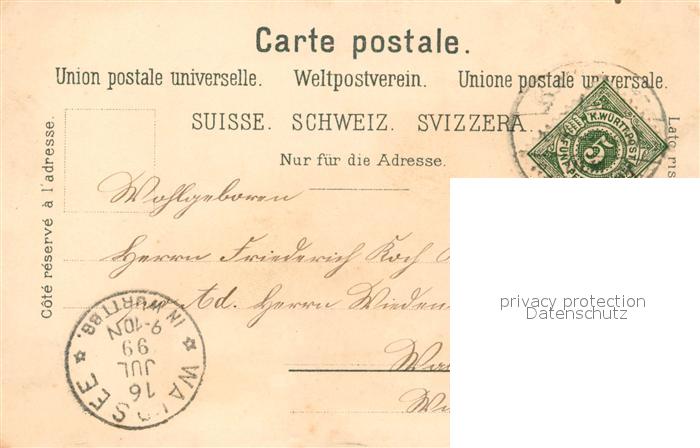 Carte postale.
Union postale universelle. Weltpostverein. Unione postale universale.
SUISSE. SCHWEIZ. SVIZZERA.
Nur für die Adresse.
Côté réservé à l'adresse.
Lato ris
K.WÜRTT.POST
FÜNF
5
Wohlgeboren
Herrn Friederich Koch
Ad. Herrn Wieden
WALDSEE
IN WÜRTTBG.
16
JUL
99
9-10N
privacy protection
Datenschutz